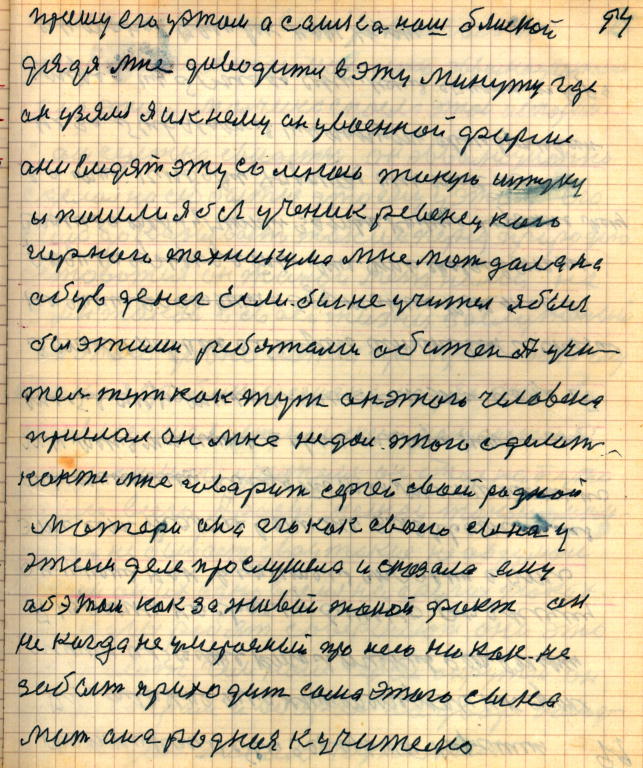 прашу его утом а сашка наш блиской 94
дядя мне даводити в эту минуту где
он узял я ик нему он увоенной форми
ани видят эту со мною такую штуку
и пошли я бы ученик ревенецкого
горного техникума мне мать дала на
обув денег Если-бы не учител я был
бы этими ребятами обижен А учи-
тел тут как тут он этого человека
прислал он мне недал этого сделат
как же мне говорит сергей своей родной
матери она его как своего сына у
этом деле прослушела и сказала ему
об этом как за живой такой факт он
не когда не умераемый про него ни как не
забыт приходит сама этого сына
мат она родная к учителю